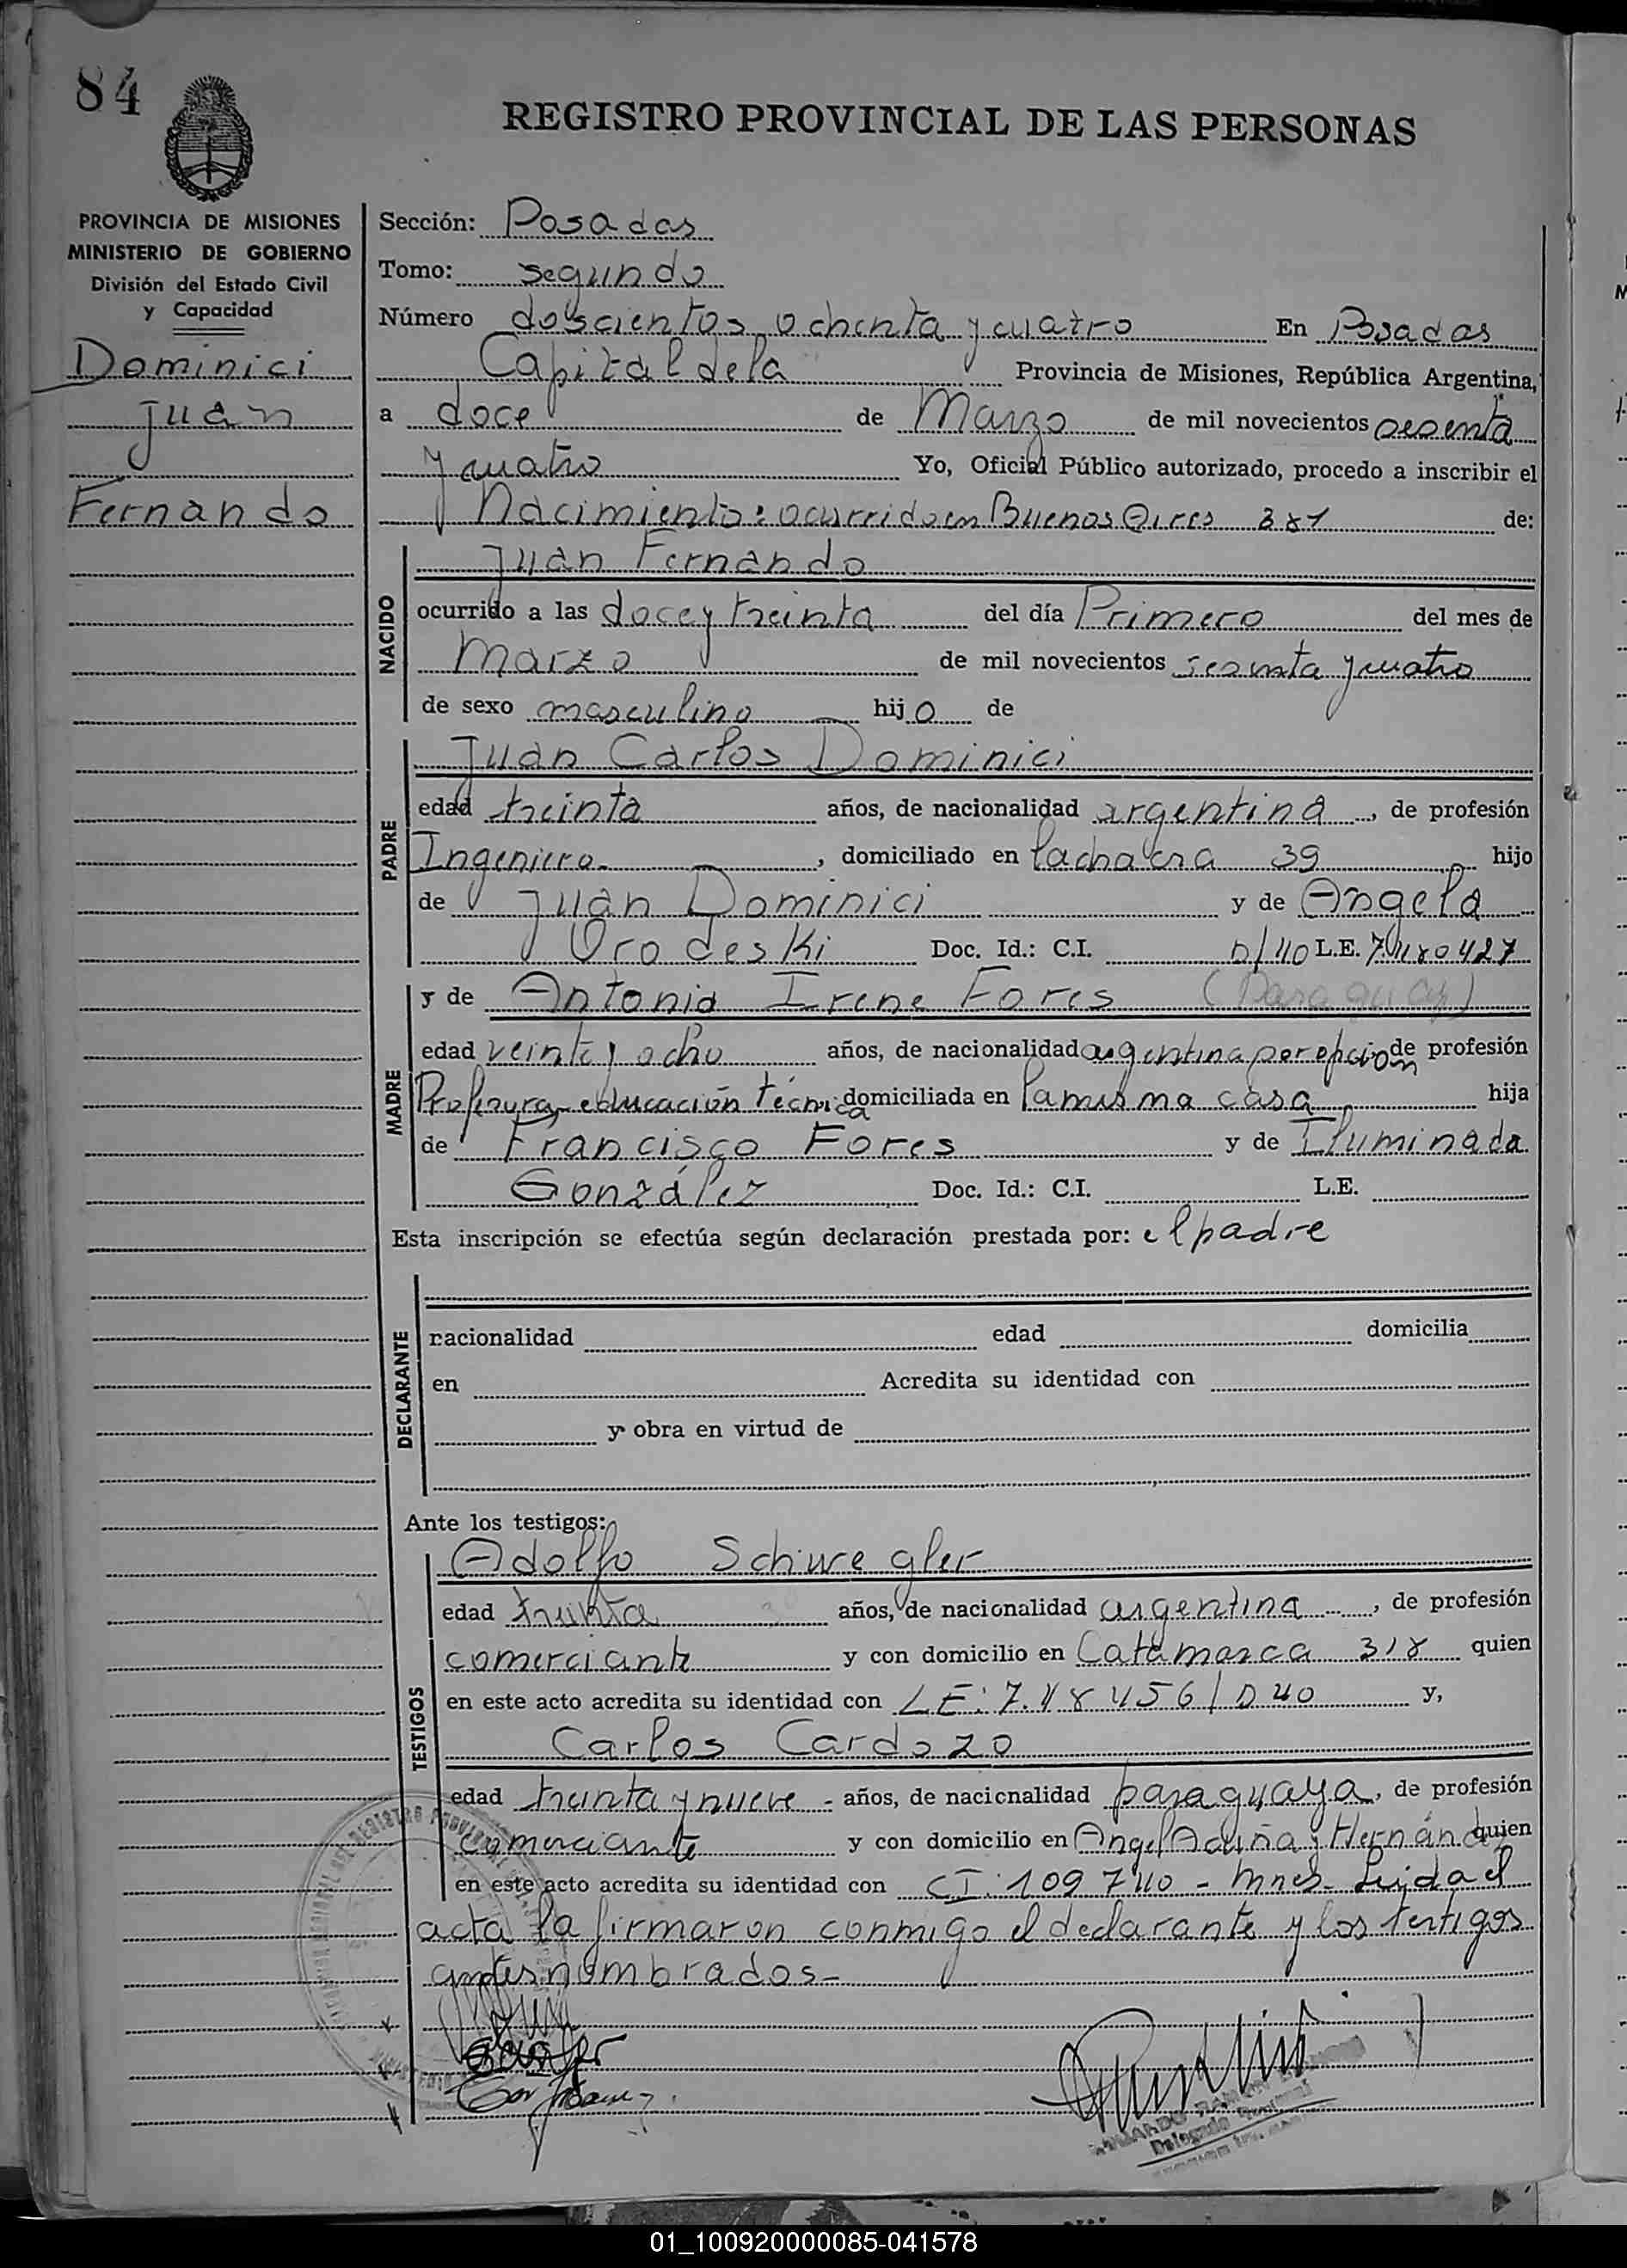 84
REGISTRO PROVINCIAL DE LAS PERSONAS
PROVINCIA DE MISIONES
MINISTERIO DE GOBIERNO
División del Estado Civil
y Capacidad
Dominici
Juan
Fernando
Sección: Posadas
Tomo: segundo
Número doscientos ochenta y cuatro En Posadas
Capital de la Provincia de Misiones, República Argentina,
a doce de Marzo de mil novecientos sesenta
y cuatro Yo, Oficial Público autorizado, procedo a inscribir el
Nacimiento: ocurrido en Buenos Aires de:
NACIDO
Juan Fernando
ocurrido a las doce y treinta del día Primero del mes de
Marzo de mil novecientos sesenta y cuatro
de sexo masculino hijo de
PADRE
Juan Carlos Dominici
edad treinta años, de nacionalidad argentina, de profesión
Ingeniero, domiciliado en la chacra 39 hijo
de Juan Dominici y de Angela
Orodeski Doc. Id.: C.I. L.E.
MADRE
y de Antonia Irene Fores (Paraguay)
edad veinte y ocho años, de nacionalidad argentina por opcion de profesión
Profesora educación técnica domiciliada en la misma casa hija
de Francisco Fores y de Iluminada
González Doc. Id.: C.I. L.E.
Esta inscripción se efectúa según declaración prestada por: el padre
DECLARANTE
nacionalidad edad domicilia
en Acredita su identidad con
y obra en virtud de
Ante los testigos:
TESTIGOS
Adolfo Schwegler
edad treinta años, de nacionalidad argentina, de profesión
comerciante y con domicilio en Catamarca 318 quien
en este acto acredita su identidad con LE: y,
Carlos Cardozo
edad treinta y nueve - años, de nacionalidad paraguaya, de profesión
comerciante y con domicilio en Angel Acuña y Hernández quien
en este acto acredita su identidad con CI: 109740 - Mnes - Leida el
acta la firmaron conmigo el declarante y los testigos
antes nombrados-
01_100920000085-041578